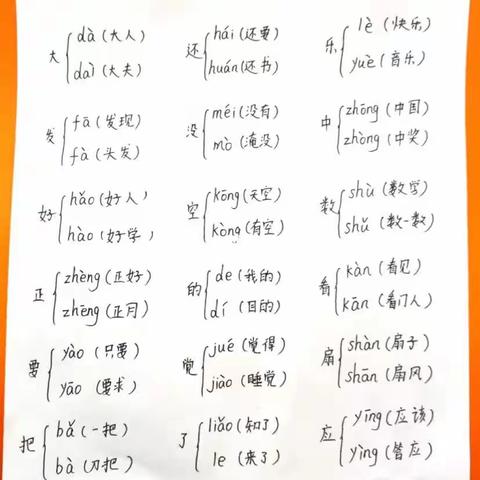 大
dà (大人)
dài (大夫)
还
hái (还要)
huán (还书)
乐
lè (快乐)
yuè (音乐)
发
fā (发现)
fà (头发)
没
méi (没有)
mò (淹没)
中
zhōng (中国)
zhòng (中奖)
好
hǎo (好人)
hào (好学)
空
kōng (天空)
kòng (有空)
数
shù (数学)
shǔ (数一数)
正
zhèng (正好)
zhēng (正月)
的
de (我的)
dí (目的)
看
kàn (看见)
kān (看门人)
要
yào (只要)
yāo (要求)
觉
jué (觉得)
jiào (睡觉)
扇
shàn (扇子)
shān (扇风)
把
bǎ (一把)
bà (刀把)
了
liǎo (知了)
le (来了)
应
yīng (应该)
yìng (答应)